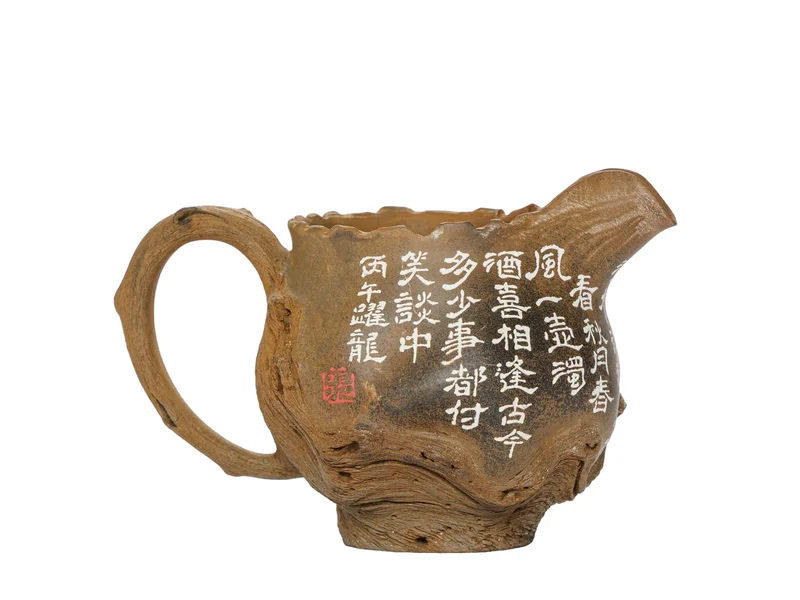 看秋月春
風一壺濁
酒喜相逢古今
多少事都付
笑談中
丙午躍龍